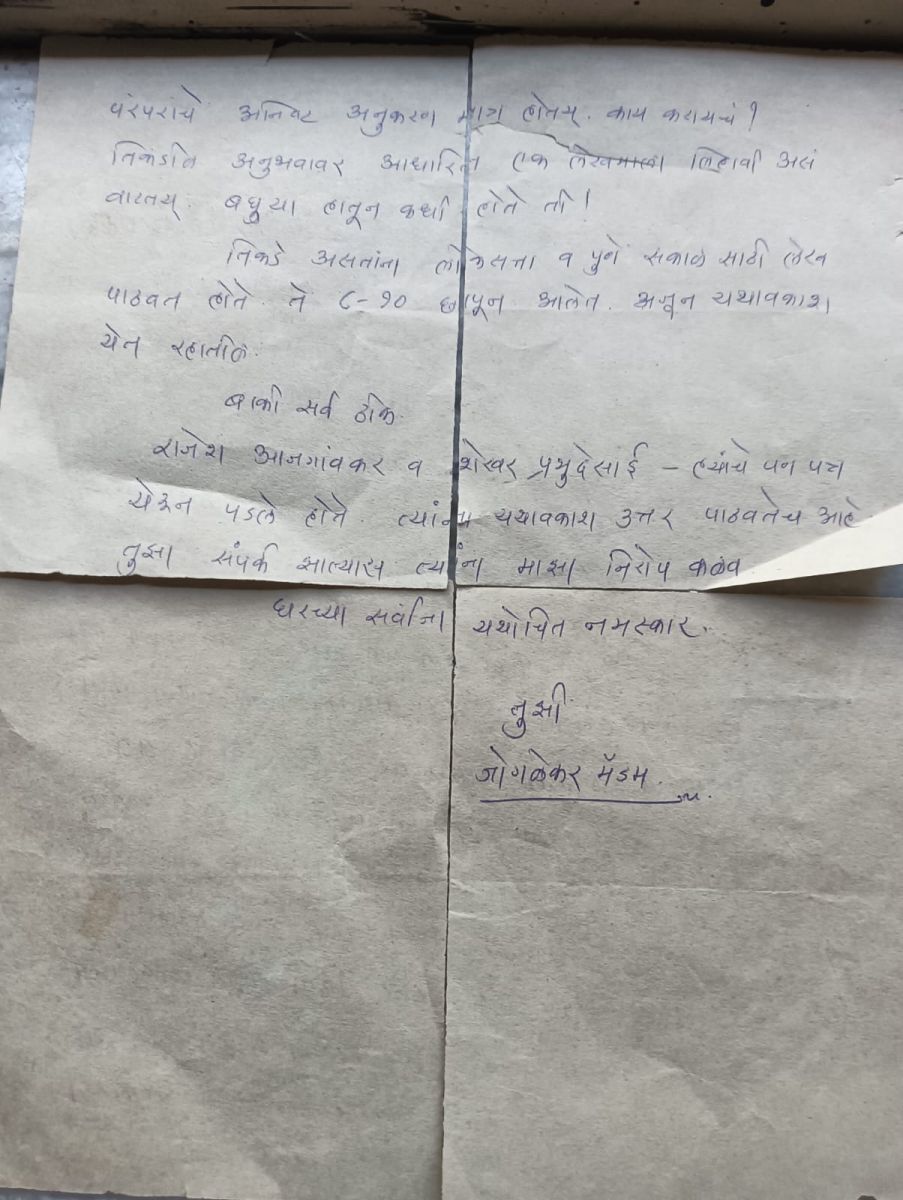 परंपरांचे अनिष्ट अनुकरण मात्र होतय्. काय करायचं?
तिकडील अनुभवावर आधारित एक लेखमाला लिहावी असं
वाटतय्. बघुया हातून कधी होते ती!
तिकडे असतांना लोकसत्ता व पुणे सकाळ साठी लेख
पाठवत होते. ते ८-१० छापून आलेत. अजून यथावकाश
येत रहातील.
बाकी सर्व ठीक.
राजेश आजगांवकर व शेखर प्रभुदेसाई - त्यांचे पण पत्र
येऊन पडले होते. त्यांना यथावकाश उत्तर पाठवतेच आहे.
तुझा संपर्क झाल्यास त्यांना माझा निरोप कळव.
घरच्या सर्वांना यथोचित नमस्कार.
तुझी
जोगळेकर मॅडम.